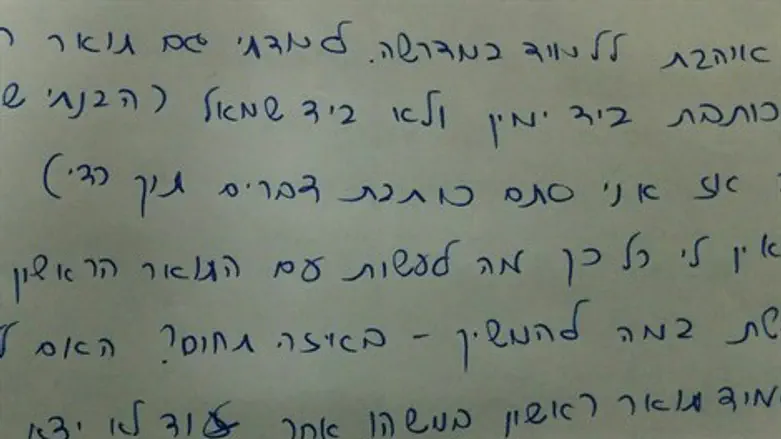 אוהבת ללמוד במדרשה. למדתי שם תואר ר
כותבת ביד ימין ולא ביד שמאל (הבנתי ש
אז אני סתם כותבת דברים תוך כדי)
אין לי כל כך מה לעשות עם התואר הראשון
שת במה להמשיך - באיזה תחום? האם ל
מוד תואר ראשון במשהו אחר עוד לא ידא